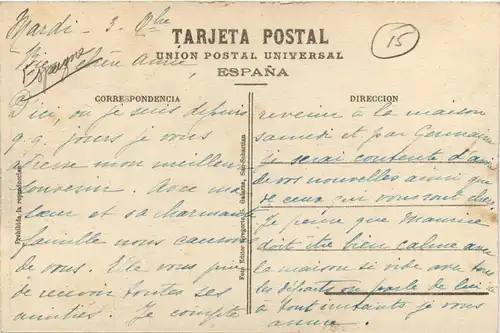 Mardi - 3. 9bre
15
TARJETA POSTAL
UNION POSTAL UNIVERSAL
ESPAÑA
Espagne
chère Amie
CORRESPONDENCIA
DIRECCION
D'ici, où je suis depuis
q.q. jours je vous
mon meilleur
souvenir. Avec ma
sœur et sa charmante
famille nous causons
de vous. Elle vous prie
de recevoir toutes ses
amitiés. Je compte
revenir à la maison
samedi et par Germaine
je serai contente d'avoir
de vos nouvelles ainsi que
de ceux qui vous sont chers
Je pense que Maurice
doit être bien calme avec
la maison si vide avec tous
les départs on parle de lui
à tout instant, je vous
aime.
Prohibida la reproducción
Foto Editor Gregorio, Galarza, San Sebastian